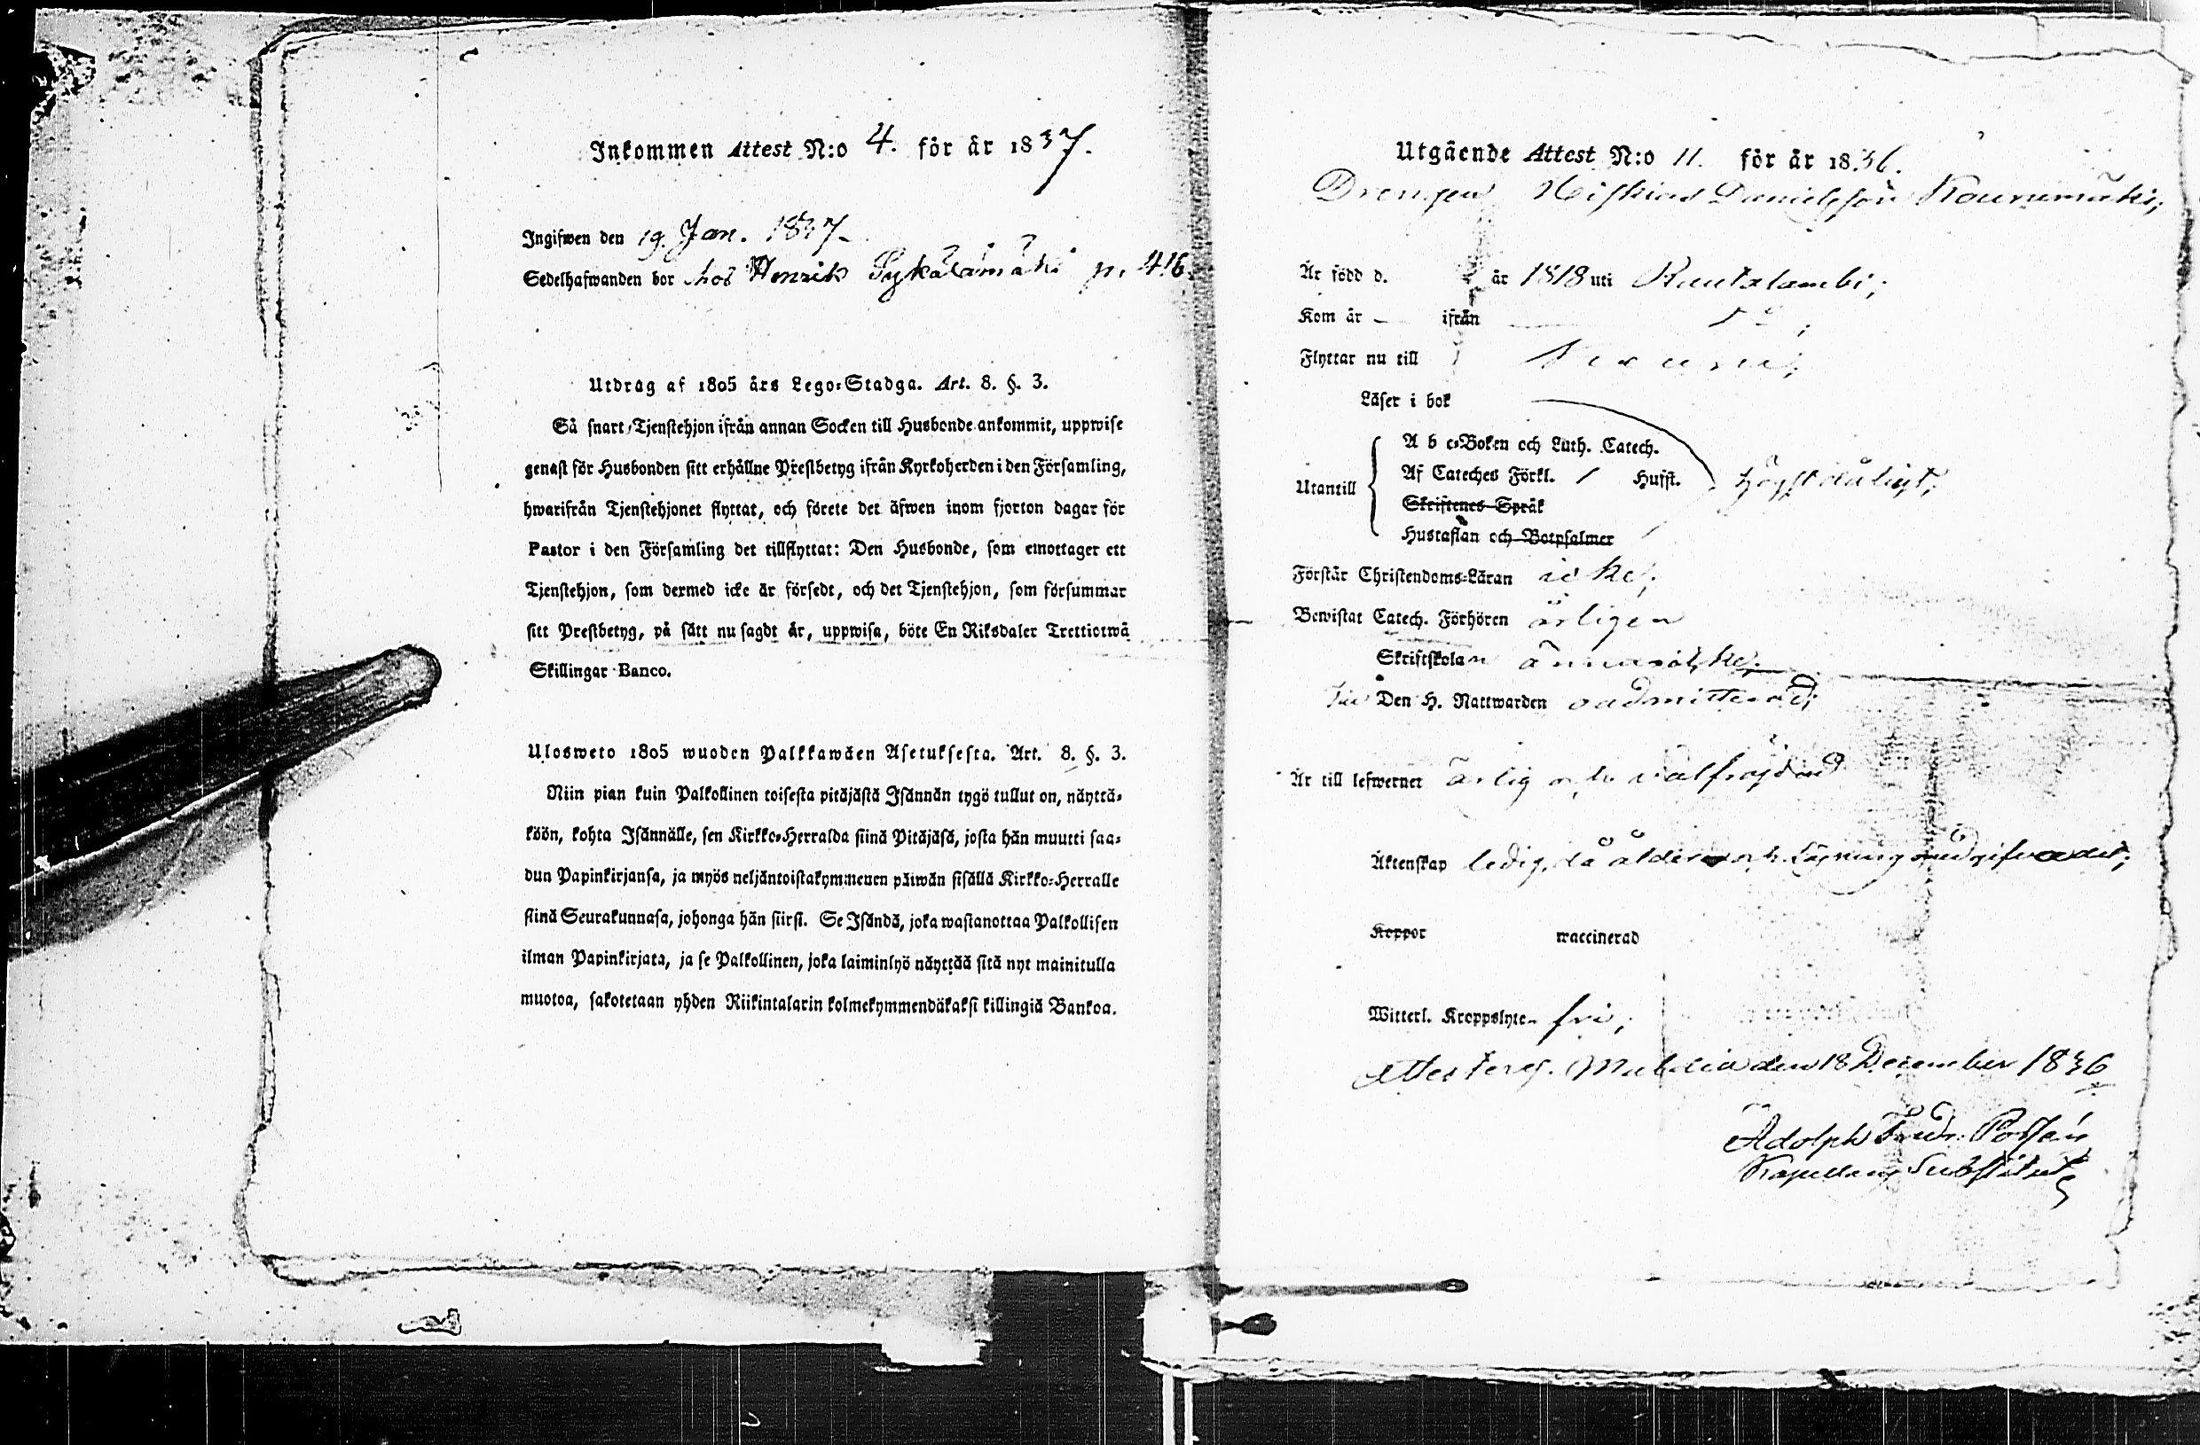 Inkommen Attest N:o 4. för år 1837.
Ingifwen den 19. Jan. 1837.
Sedelhafwanden bor hos Henrik Sykärämäki p. 416.
Utdrag af 1805 års Lego-Stadga. Art. 8. §. 3.
Så snart Tjenstehjon ifrån annan Socken till Husbonde ankommit, uppwise
genast för Husbonden sitt erhållne Prestbetyg ifrån Kyrkoherden i den Församling,
hwarifrån Tjenstehjonet flyttat, och förete det äfwen inom fjorton dagar för
Pastor i den Församling det tillflyttat: Den Husbonde, som emottager ett
Tjenstehjon, som dermed icke är försedt, och det Tjenstehjon, som försummar
sitt Prestbetyg, på sätt nu sagdt är, uppwisa, böte En Riksdaler Trettiotwå
Skillingar Banco.
Ulosweto 1805 wuoden Palkkawäen Asetuksesta. Art. 8. §. 3.
Niin pian kuin Palkollinen toisesta pitäjästä Isännän tygö tullut on, näyttä-
köön, kohta Isännälle, sen Kirkko-Herralda siinä Pitäjäsä, josta hän muutti saa-
dun Papinkirjansa, ja myös neljäntoistakymmenen päiwän sisällä Kirkko-Herralle
siinä Seurakunnasa, johonga hän siirsi. Se Isändä, joka wastanottaa Palkollisen
ilman Papinkirjata, ja se Palkollinen, joka laiminlyö näyttää sitä nyt mainitulla
muotoa, sakotetaan yhden Riikintalarin kolmekymmendäkaksi killingiä Bankoa.
Utgående Attest N:o 11. för år 1836.
Drengen Hiskias Danielsson Kourumäki,
Är född d. år 1818 uti Rautalambi;
Kom år – ifrån
Flyttar nu till
Läser i bok
A b c-Boken och Luth. Catech.
Utantill Af Cateches Förkl. / Hufst. högst dåligt;
Skriftenes Språk
Hustaflan och Botpsalmer
Förstår Christendoms-Läran icke;
Bewistat Catech. Förhören årligen
Skriftskolan ännu icke;
Till Den H. Nattwarden oadmitterad;
Är till lefwernet ärlig och välfräjdad
Äktenskap ledig, då ålder och
Koppor waccinerad
Witterl. Kroppslyte- fri;
Attesterg. Multia den 18 December 1836
Adolph Fredr. Possén
Kapellans Substitut